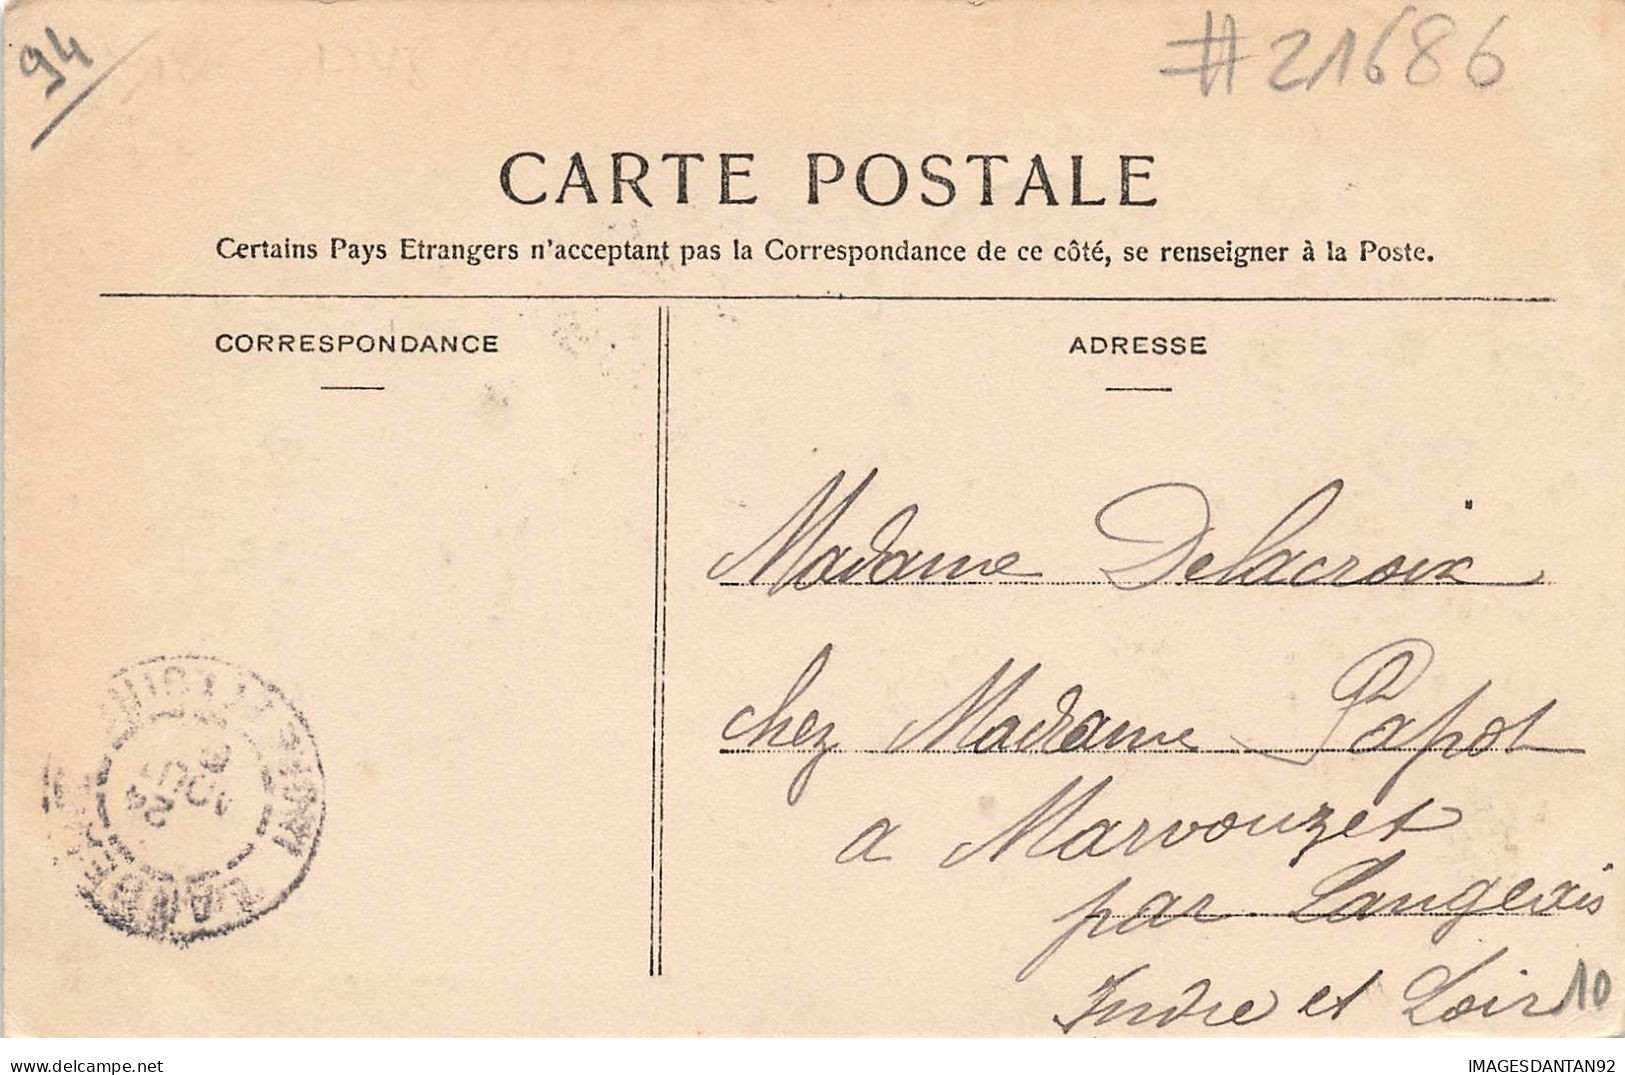 94
#21686
CARTE POSTALE
Certains Pays Etrangers n'acceptant pas la Correspondance de ce côté, se renseigner à la Poste.
CORRESPONDANCE
ADRESSE
Madame Delacroix
chez Madame Papot
a Marvouzet
par Langeais
Indre et Loir
10
24
AOUT
IMAGESDANTAN92